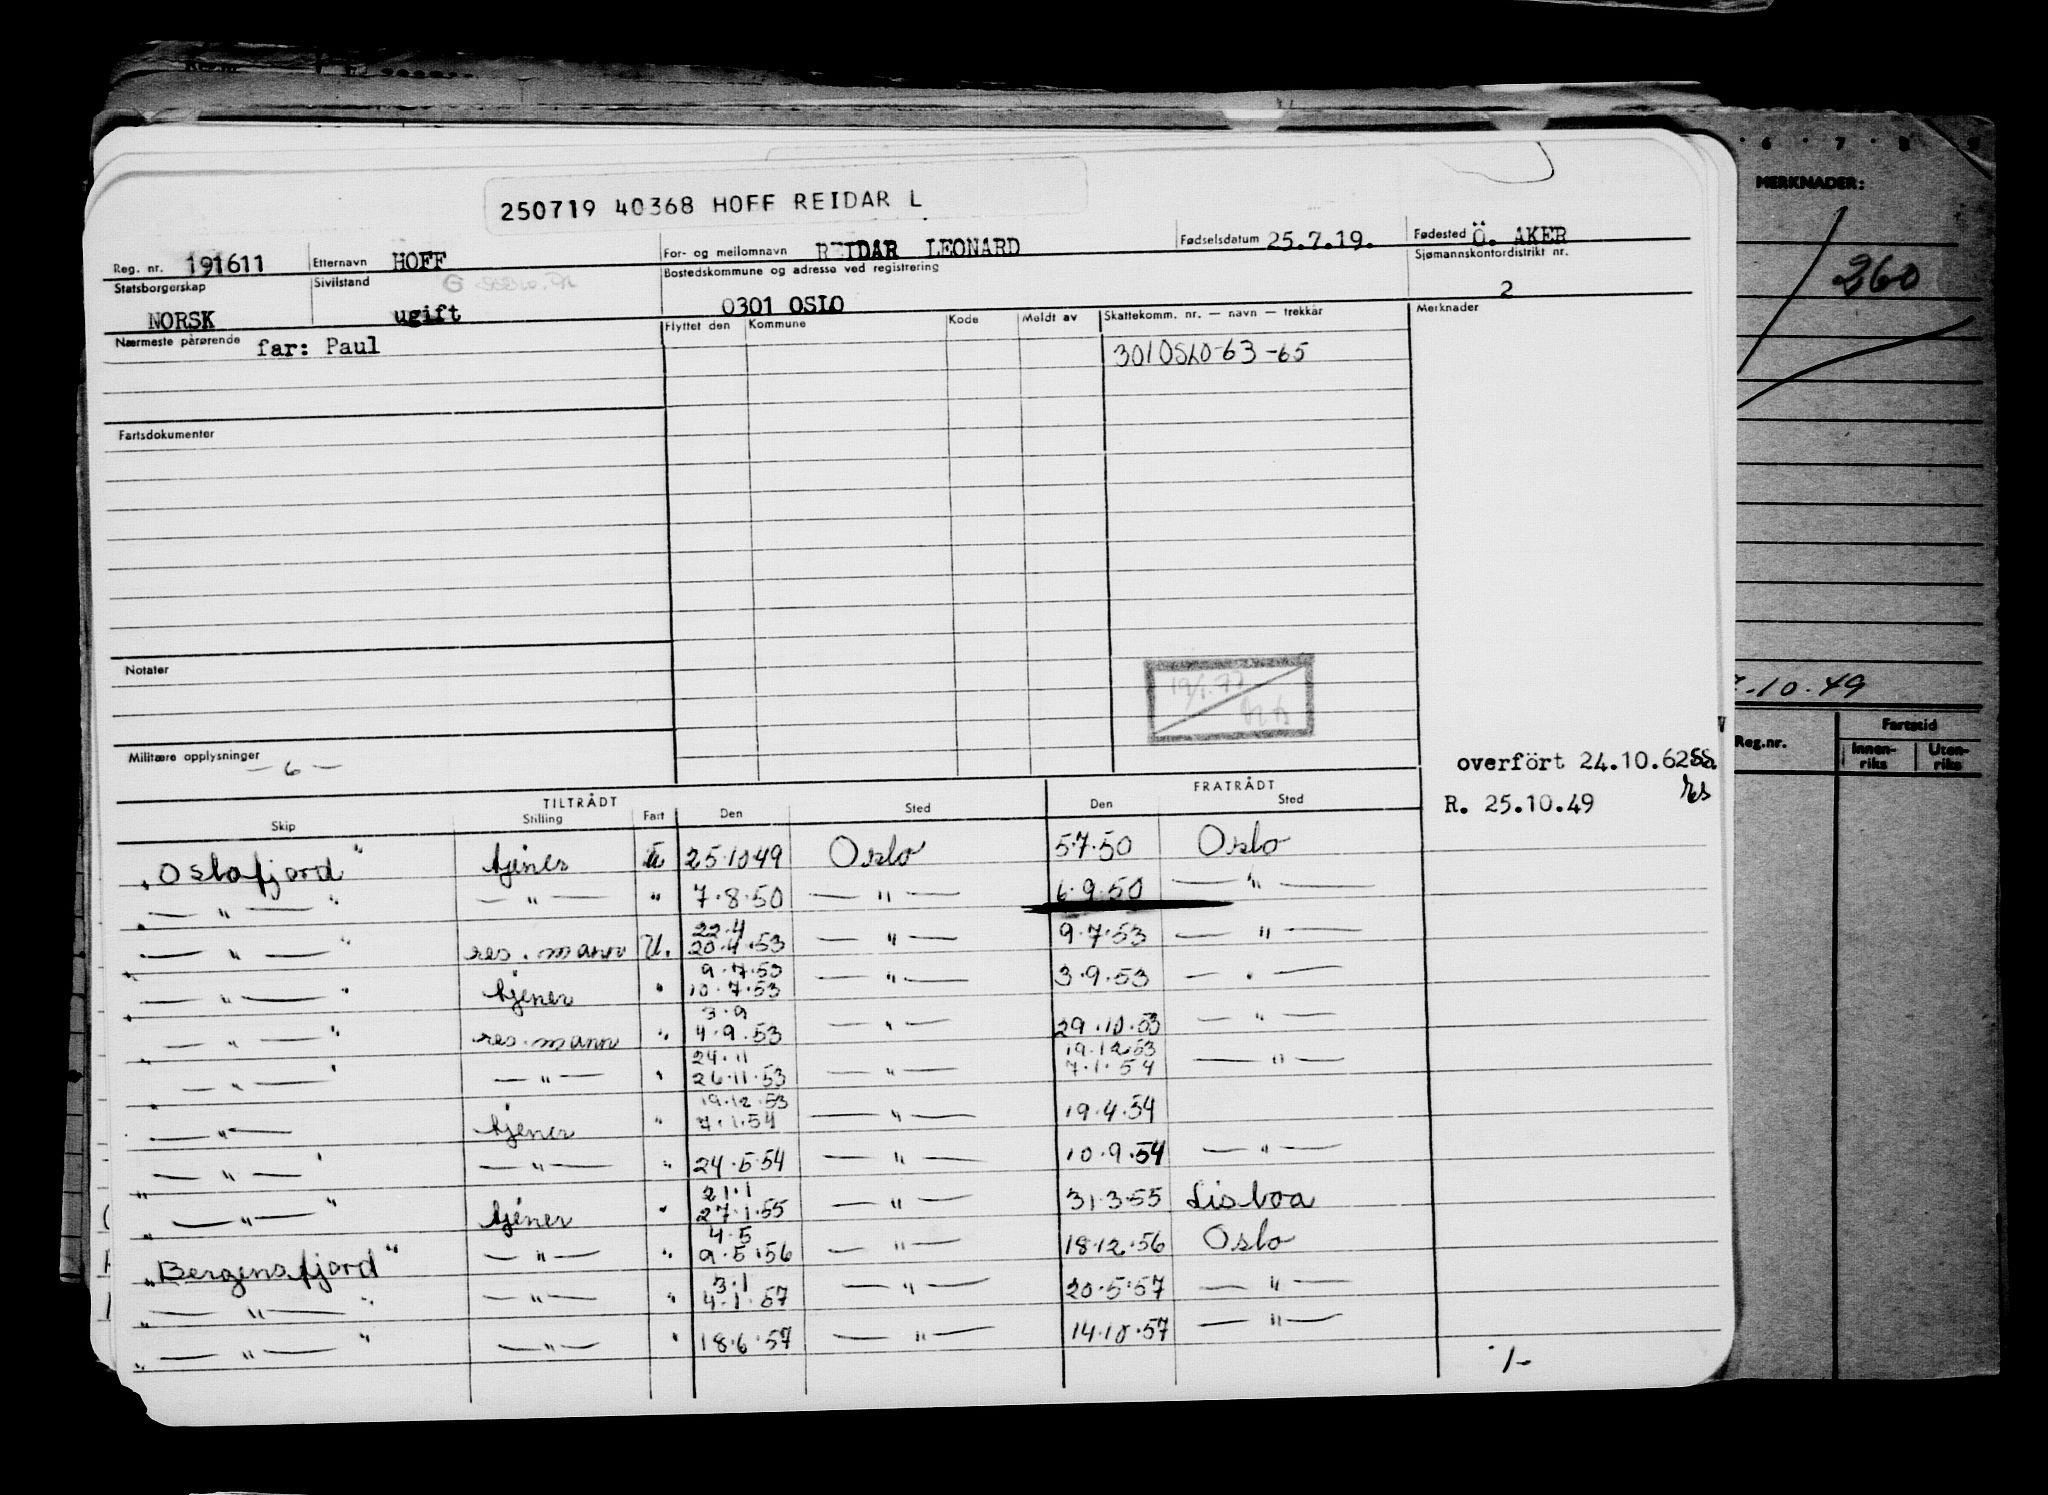 250719 40368 HOFF REIDAR L
Reg. nr. 191611 Etternavn HOFF For- og mellomnavn REIDAR LEONARD Fødselsdatum 25.7.19. Fødested Ö. AKER
Statsborgerskap NORSK Sivilstand ugift Bostedskommune og adresse ved registrering 0301 OSLO Sjømannskontordistrikt nr. 2
Nærmeste pårørende far: Paul Flyttet den Kommune Kode Meldt av Skattekomm. nr. — navn — trekkår Merknader
301 OSLO-63-65
Fartsdokumenter
Notater
Militære opplysninger
— 6 —
overfört 24.10.62
R. 25.10.49
TILTRÅDT FRATRÅDT
Skip Stilling Fart Den Sted Den Sted
"Oslofjord" tjener U 25.10.49 Oslo 5.7.50 Oslo
" — " — " — " — " 7.8.50 — " — 6.9.50 — " —
— " — " res. mann U. 22.4 20.4.53 — " — 9.7.53 — " —
" — " — " tjener " 9.7.53 10.7.53 — " — 3.9.53 — " —
" — " — " res. mann " 3.9 4.9.53 — " — 29.10.53 — " —
" — " — " — " — " 24.11 26.11.53 — " — 19.12.53 7.1.54 — " —
" — " — tjener " 19.12.53 7.1.54 — " — 19.4.54
— " — " — " — " 24.5.54 — " — 10.9.54 — " —
" — " — " tjener " 21.1 27.1.55 — " — 31.3.55 Lisboa
"Bergensfjord" — " — " 4.5 9.5.56 — " — 18.12.56 Oslo
" — " — " — " — " 3.1 4.1.57 — " — 20.5.57 — " —
" — " — " — " — " 18.6.57 — " — 14.10.57 — " —
·/-
6 · 7 · 8 9
MERKNADER:
360
.10.49
Reg.nr. Fartstid
Innenriks Utenriks